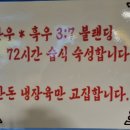 한우 * 흑우 3:7 블랜딩
72시간 습식 숙성합니다
한돈 냉장육만 고집합니다.